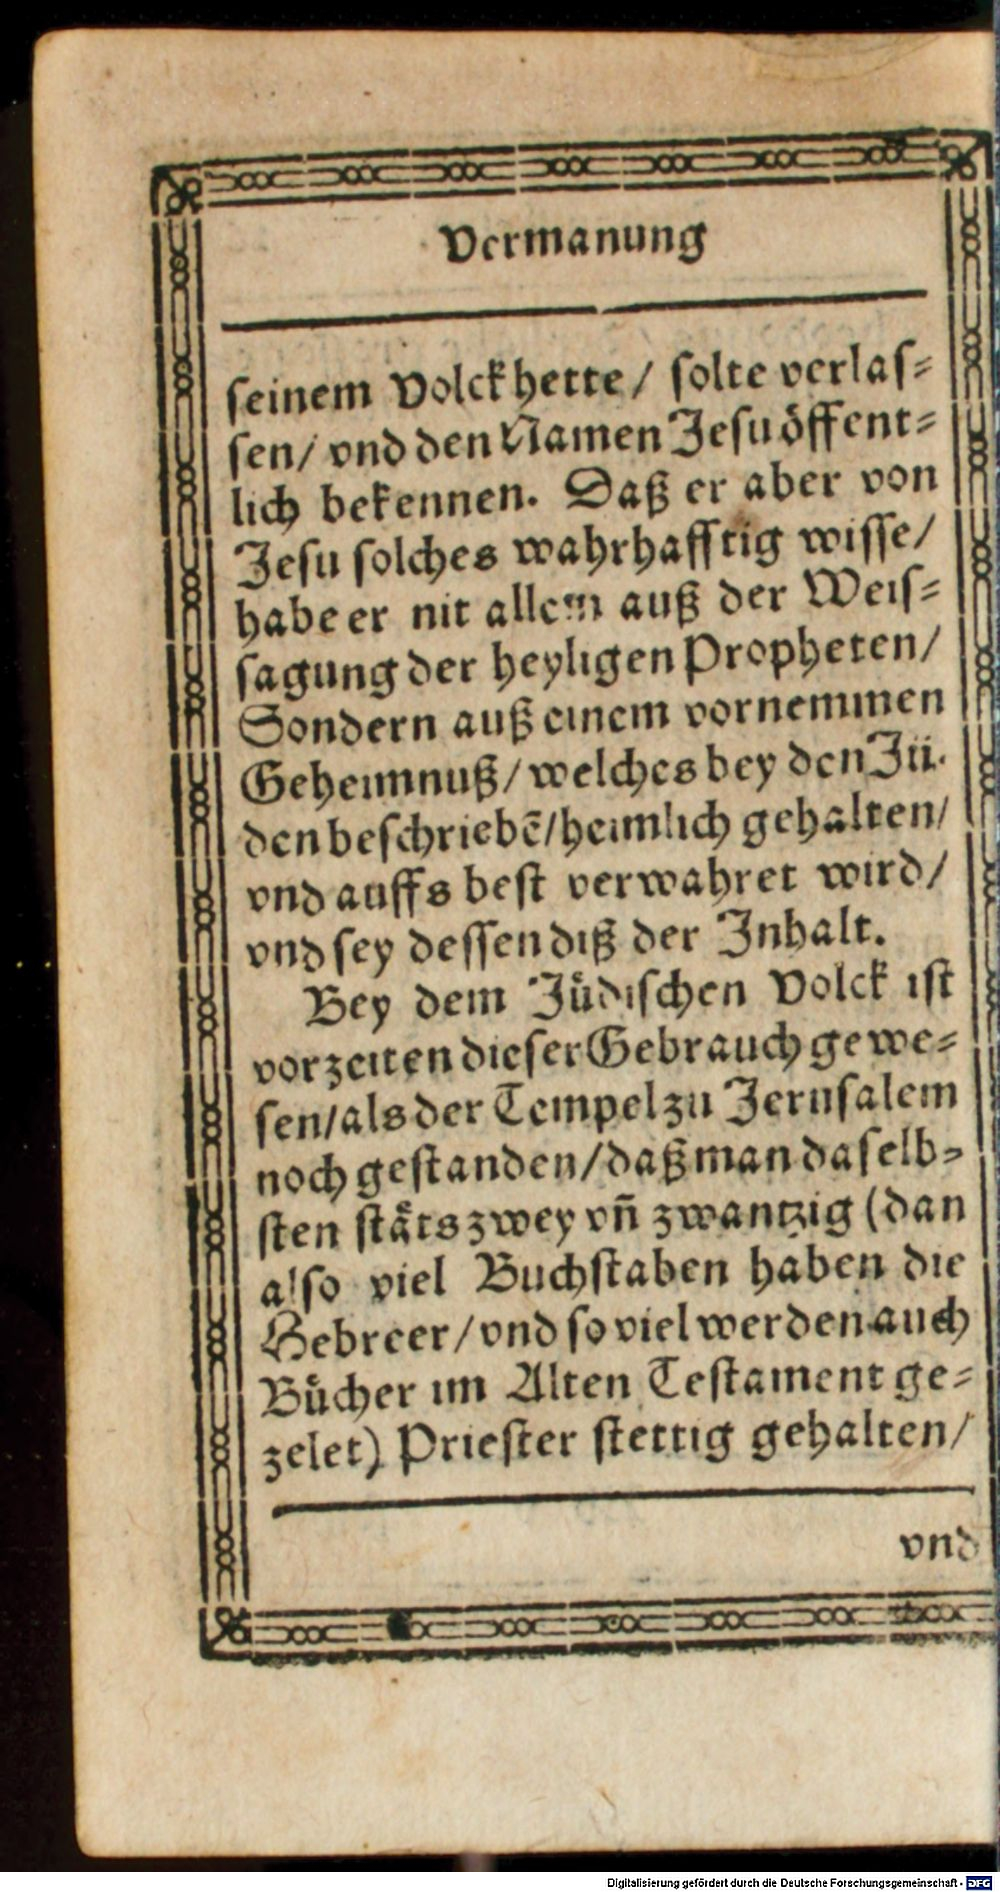 Vermanung
seinem Volck hette / solte verlas⸗
sen / vnd den Namen Jesu öffent⸗
lich bekennen. Daß er aber von
Jesu solches wahrhafftig wisse /
habe er nit allein auß der Weis⸗
sagung der heyligen Propheten /
Sondern auß einem vornemmen
Geheimnuß / welches bey den Jü⸗
den beschriebẽ / heimlich gehalten /
vnd auffs best verwahret wird /
vnd sey dessen diß der Inhalt.
Bey dem Jüdischen Volck ist
vorzeiten dieser Gebrauch gewe⸗
sen / als der Tempel zu Jerusalem
noch gestanden / daß man daselb⸗
sten stäts zwey vñ zwantzig (dan
also viel Buchstaben haben die
Hebreer / vnd so viel werden auch
Bücher im Alten Testament ge⸗
zelet) Priester stettig gehalten /
vnd
Digitalisierung gefördert durch die Deutsche Forschungsgemeinschaft - DFG